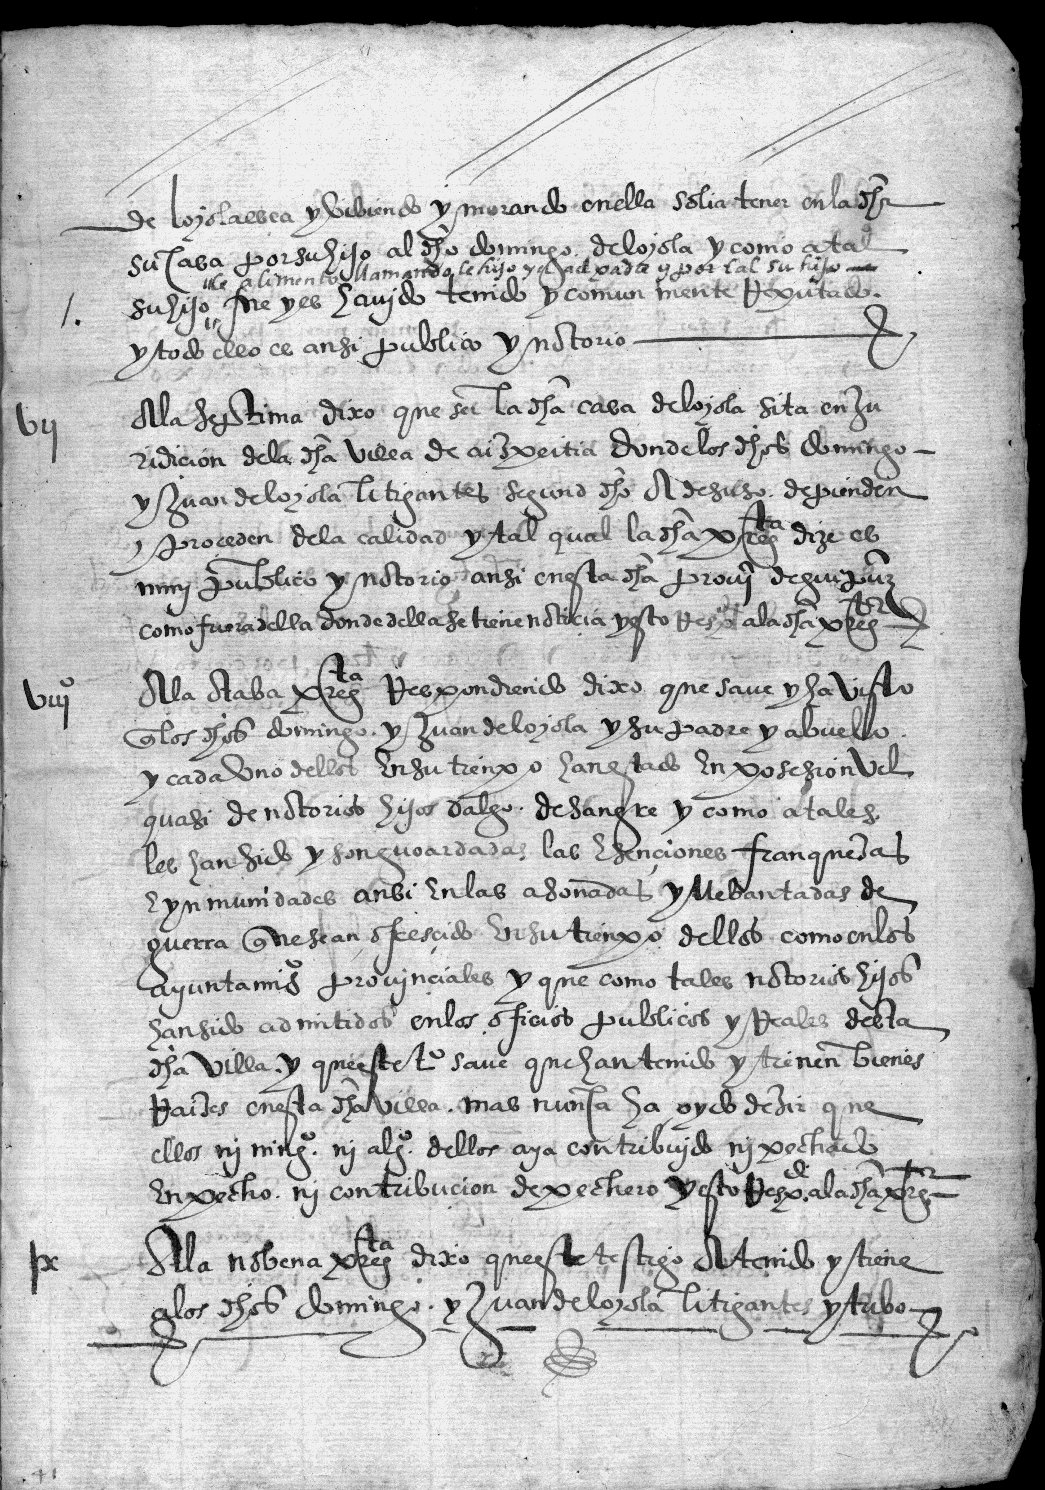 de loyolaessa y vibiendo y morando en ella solia tener en la dha
su casa por su hijo al dho domingo de loyola y como a tal
le alimento llamandole hijo y el a el padre y por tal su hijo
su hijo fue y es havido tenido y comun mente Reputado.
y todo ello es ansi publico y notorio
vij
A la septima dixo que si la dha casa de loyola sita en Ju
ridicion de la dha villa de aizpeitia donde los dhos domingo
y Juan de loyola litigantes segund dho A de suso. dependen
y proceden de la calidad y tal qual la dha pregta dize es
muy publico y notorio ansi en esta dha provi de guipuz
como fuera della donde della se tiene noticia y esto Respo a la dha pregta
viijo
A la otaba pregta Respondiendo dixo que save y ha visto
q los dhos domingo. y Juan de loyola y su padre y abuello.
y cada Uno dellos En su tienpo han estado En posesion vel
quasi de notorios hijos dalgo. de sangre y como a tales.
les han sido y son guoardadas las Esenciones franquezas
E ynmunidades ansi En las a honadas y llebantadas de
guerra que se an ofrescido En su tienpo dellos como en los
ayuntamios provinciales y que como tales notorios hijos
han sido admitidos en los oficios publicos y Reales desta
dha villa. y que este to save que han tenido y tienen bienes
Raizes en esta dha villa. mas nunca ha oydo dezir que
ellos ni ningo. ni algo. dellos aya contribuydo ni pechado
En pecho. ni contribucion de pechero y esto Respodi. a la dha pregta
ix
A la nobena pregta dixo que este testigo A tenido y tiene
a los dhos domingo. y Juan de loyola litigantes y tubo